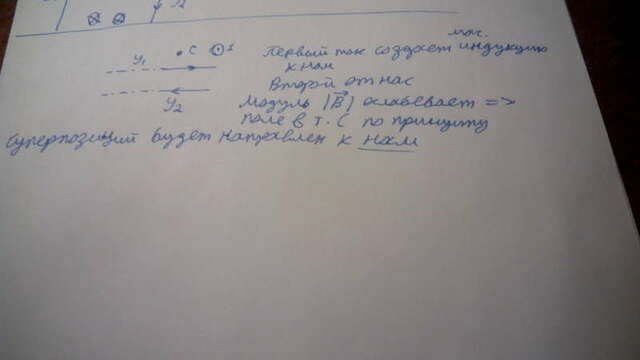 У2
У1 • C ⊙ 1
У2
Первый ток создает маг. индукцию
к нам
Второй от нас
Модуль |B⃗| ослабевает =>
поле в т. C по принципу
суперпозиций будет направлен к нам